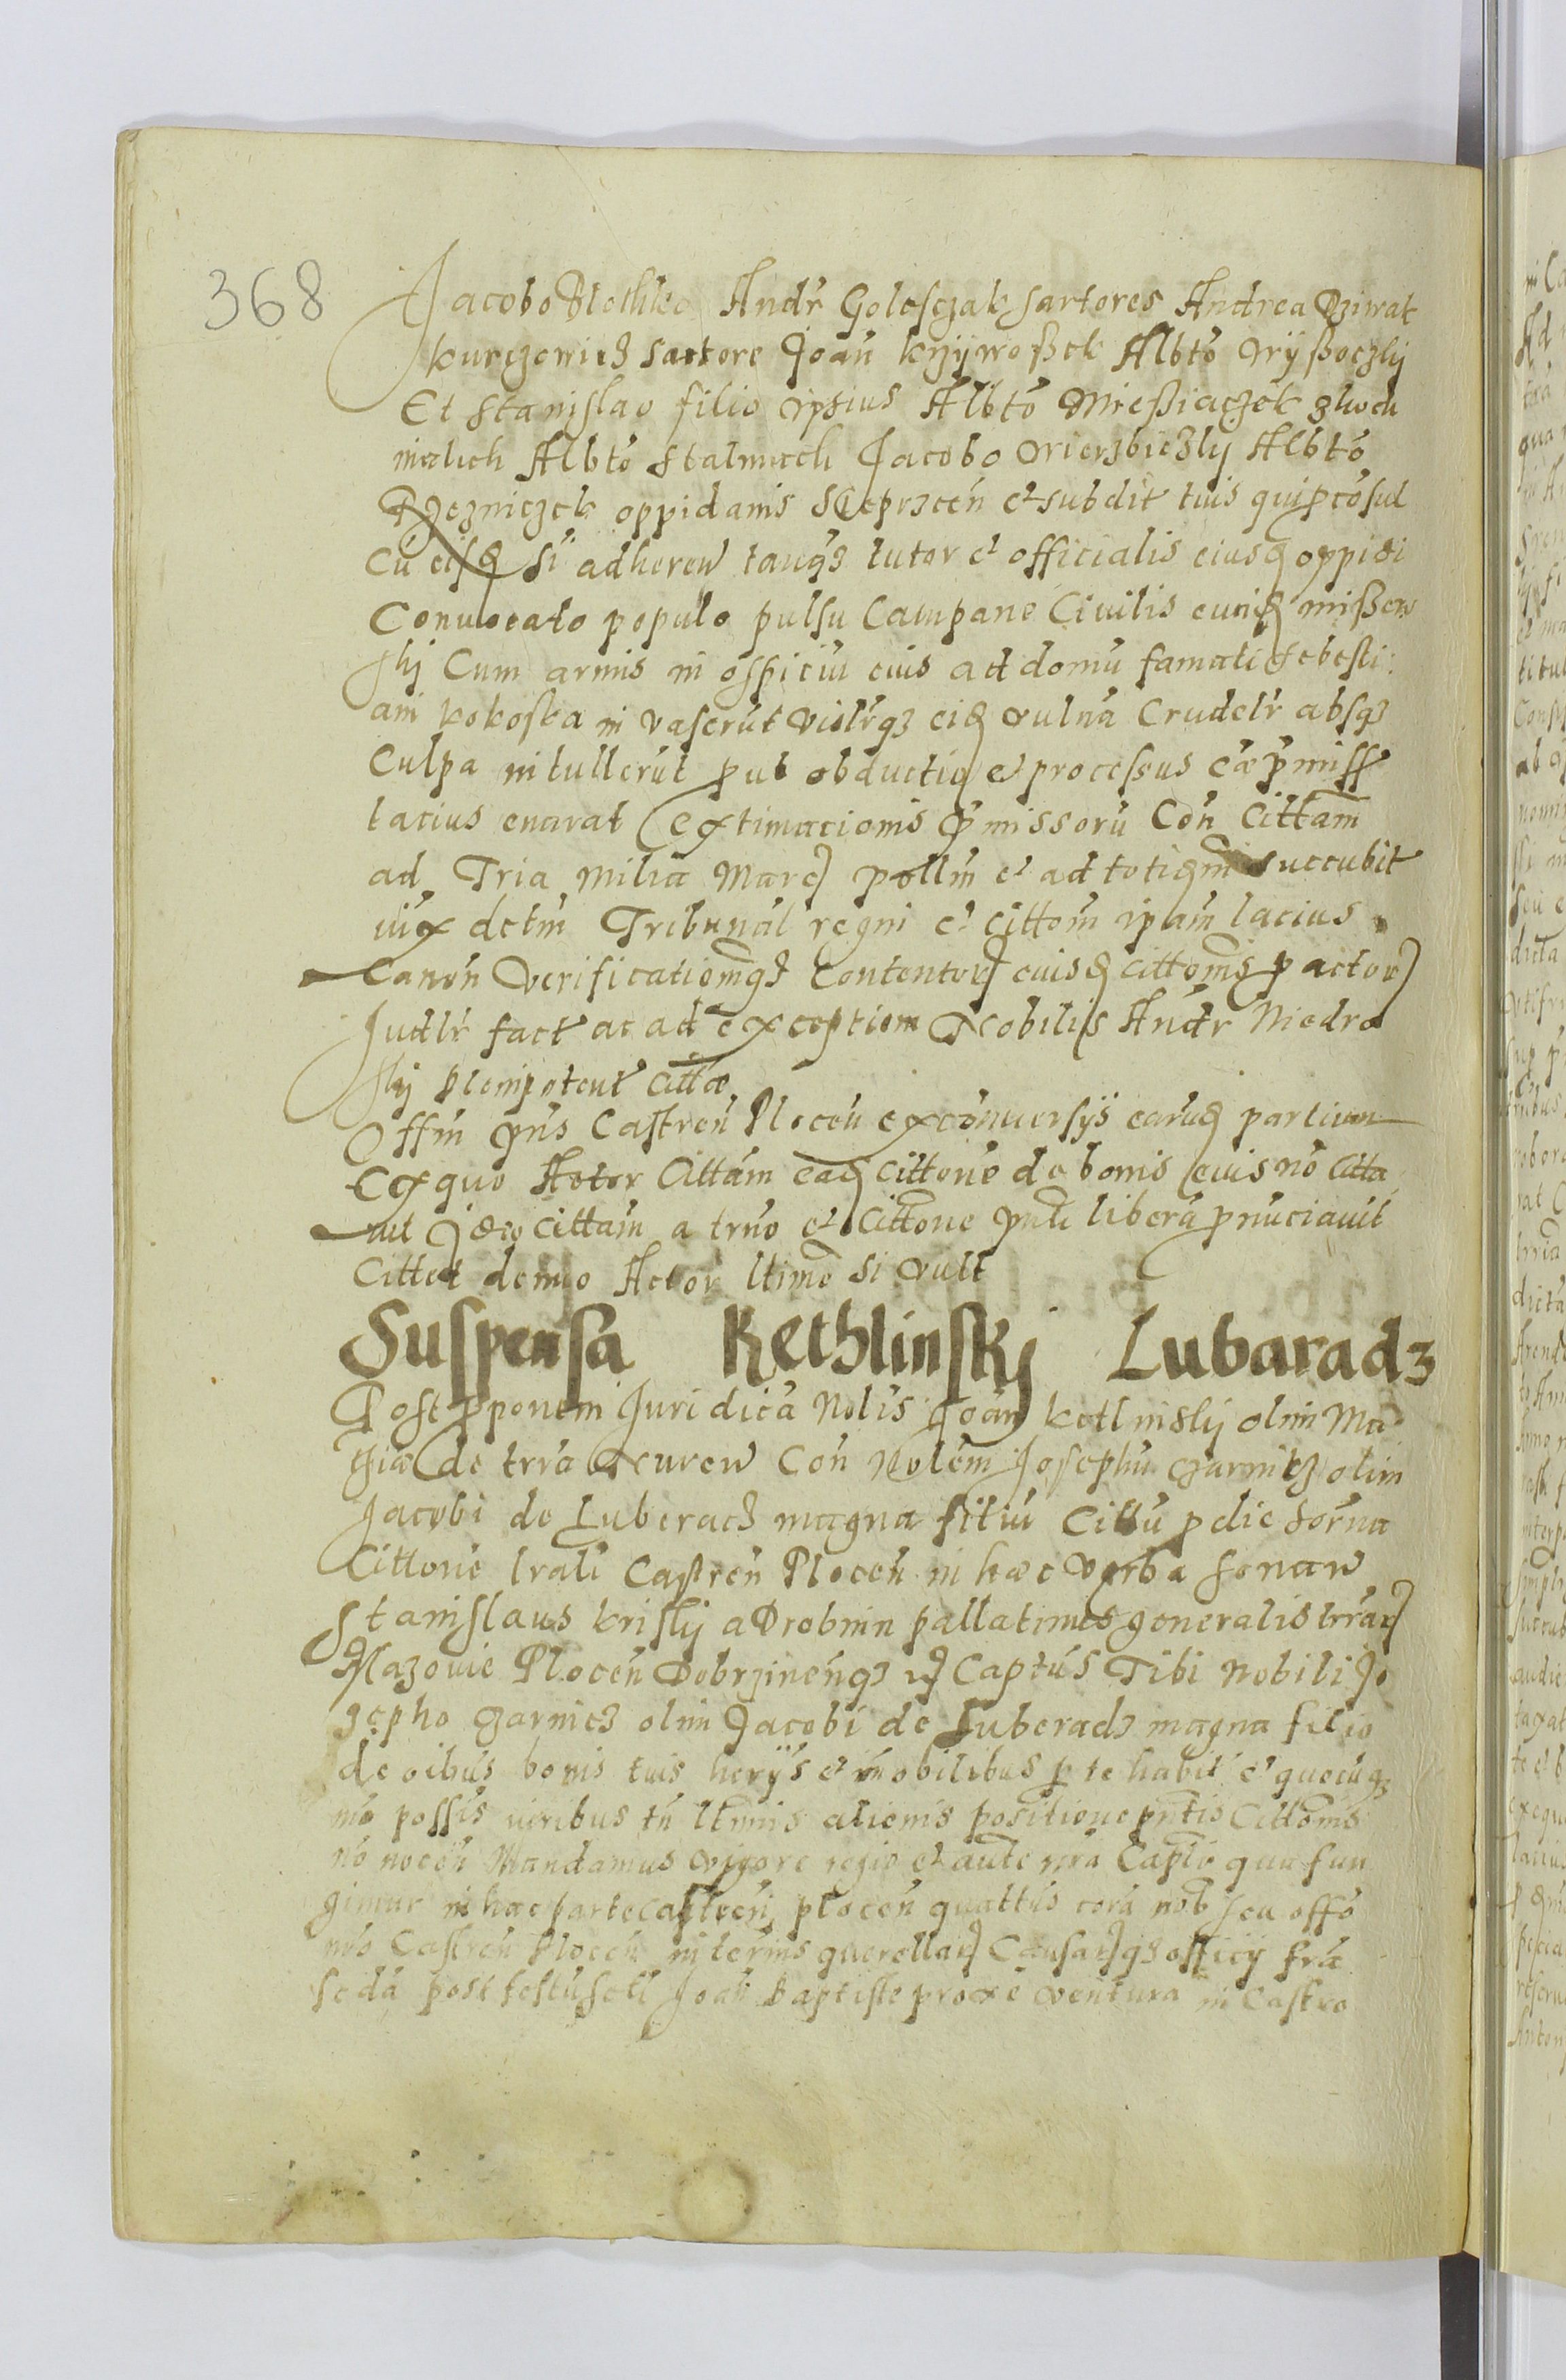 368
Jacobo Andr̃ Golesczak sartores Andrea Dziwat
kurczewicz sartore Joañ krzÿwoßek Albto Wÿßoczkÿ
Et Stanislao filio ipsius Albto Mießiaczek
Albto Stalmach Jacobo Wierzbiczkÿ Albto
Rzezniczek oppidanis Sieprcen̄ et subdit tuis qui pcosul
Cu adheren tanqz tutor et officialis eiusq oppidi
Conuocato populo pulsu Campane Ciuilis eundq mißerw
skÿ Cum armis in ospiciu eius ad domu famati Sebesti:
ani kokoska in vaserut violr̄qz eiq vulna Crudelr̄ absqz
Culpa intullerut put obductio et processus p̄miss
lacius enarat extimacionis p̄missoru Con Cittam
ad Tria Milia Marc pollm et ad totiqm succubit
iux detm Tribunal regni et Cittom ipam lacius
Canon Verificationemqz Contentor eiusq cittonis p actor
Judlr̄ fact ac ad exceptiom Nobilis Andr̄ Niedro
skÿ plenipotent citta
Offm pns Castren̄ Plocen̄ ex conuersÿs earuq partium
Ex quo Actor Cittam eaq cittone de bonis eius no citta
uit Ideo cittam a trno et Cittone pnti libera pnuciauit
Cittet denuo Actor ltime si vult
Suspensa Kethlinskj Lubaradz
Post pponem Juridica Nolis Joan ketlinskÿ olim Ma
de trra Con Nolem Josephu czarnicz olim
Jacobi de Luberacz magna filiu Cittu p die
Cittone lrali Castren̄ Plocen̄ in haec verba sonan
Stanislaus kriskÿ a Drobnin pallatinus generalis trrar
Mazouie Plocen̄ Dobrzinenqz Captus Tibi Nobili Jo
zepho czarnicz olim Jacobi de Luberadz magna filio
de oibus bonis tuis herÿs et mobilibus p te habit et quocuqz
mo possis iuribus tn ltimis alienis positione pntis Cittonis
no nocen̄ Mandamus vigore regio et aute nra Captu qua fun
gimur in hac parte castren̄ plocen̄ quattus cora nob seu offo
nro Castren̄ Plocen̄ in termis querellar Causarqz officÿ fra
seda post festu scti Joan Baptiste proxe ventura in Castro